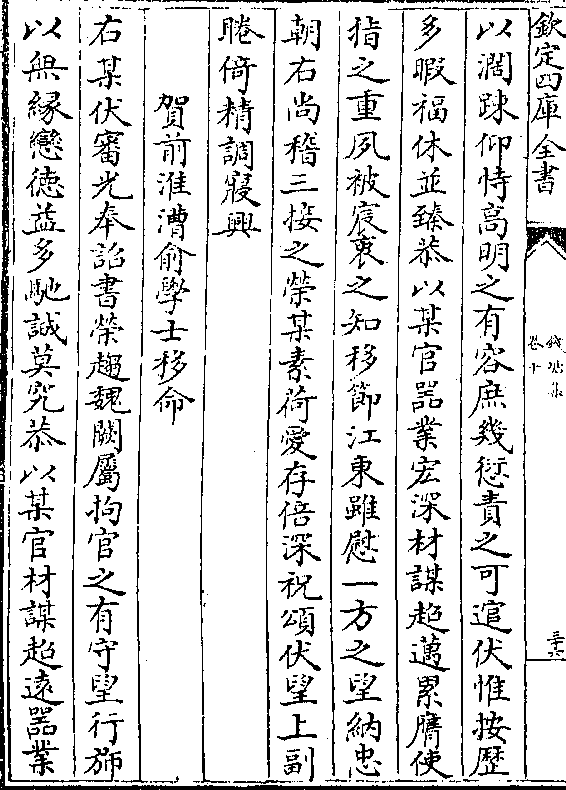 欽定四庫全書
錢塘集
卷十
三十六
以濶踈仰恃高明之有容庶幾愆責之可逭伏惟按歷
多暇福休並臻恭以某官器業宏深材謀超邁累膺使
指之重夙被宸衷之知移節江東雖慰一方之望納忠
朝右尚稽三接之榮某素荷愛存倍深祝頌伏望上副
睠倚精調寢興
賀前淮漕俞學士移命
右某伏審光奉詔書榮趨魏闕屬拘官之有守望行斾
以無緣戀德益多馳誠莫究恭以某官材謀超遠器業